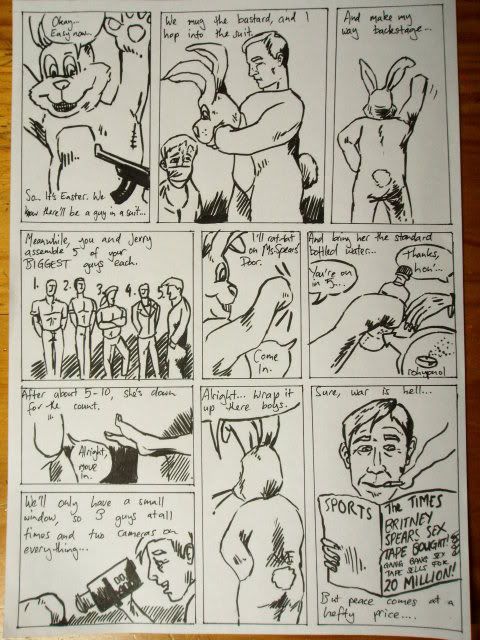 Okay...
Easy now...
So... It's Easter. We
know there'll be a guy in a suit...
We mug the bastard, and I
hop into the suit.
And make my
way backstage...
Meanwhile, you and Jerry
assemble 5 of your
BIGGEST guys each.
1. 2. 3. 4. 5.
I'll rat-tat
on Ms. Spears'
Door.
Come
In.
And bring her the standard
bottled water...
You're on
in 5...
Thanks,
hon'...
rohypnol
After about 5-10, she's down
for the count.
Alright,
move
in.
We'll only have a small
window, so 3 guys at all
times and two cameras on
everything...
Alright... Wrap it
up there boys.
Sure, war is hell...
SPORTS
The TIMES
BRITNEY
SPEARS SEX
TAPE BOUGHT!
GANG BANG SEX
TAPE SELLS FOR
20 MILLION!!
But peace comes at a
hefty price....